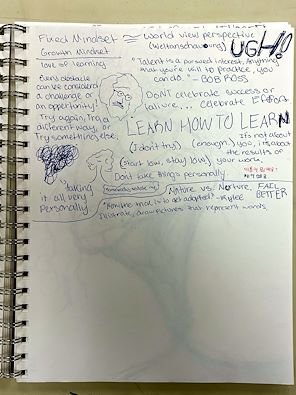 Fixed Mindset ≅ world view perspective
Growth Mindset (Weltanschauung) UGH!!
love of learning
"Talent is a pursued interest. Anything
that you're willing to practice, you
can do." - BOB ROSS
Every obstacle
can be considered
a challenge or
an opportunity!
Try again, Try a
different way, or
Try something else.
DON'T celebrate success or
failure... celebrate Effort.
LEARN HOW TO LEARN
It's not about
(I don't try) (enough) you, it's about
the results of
(start low, stay low) your work.
Don't take things personally
"taking
it all very
personally"
Nature vs. Nurture. FAIL
BETTER
the trick is to get adopted" -Rylee
Illustrate, draw pictures that represent words.